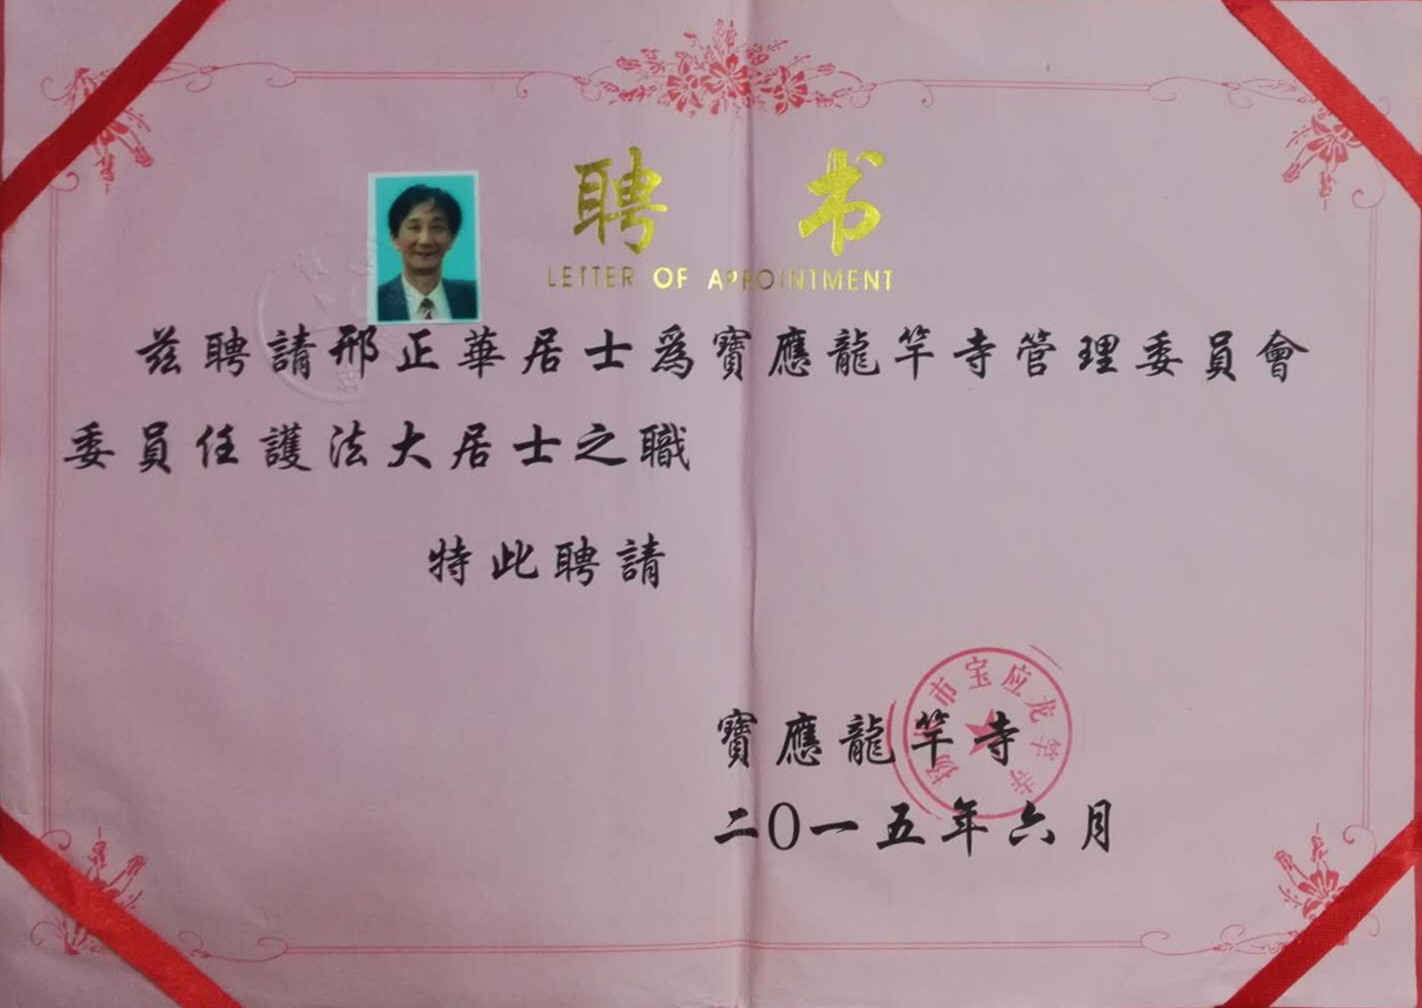 聘 书
LETTER OF APPOINTMENT
兹聘請邢正華居士爲寶應龍竿寺管理委員會
委員任護法大居士之職
特此聘請
寶應龍竿寺
二〇一五年六月
市宝应龙竿寺